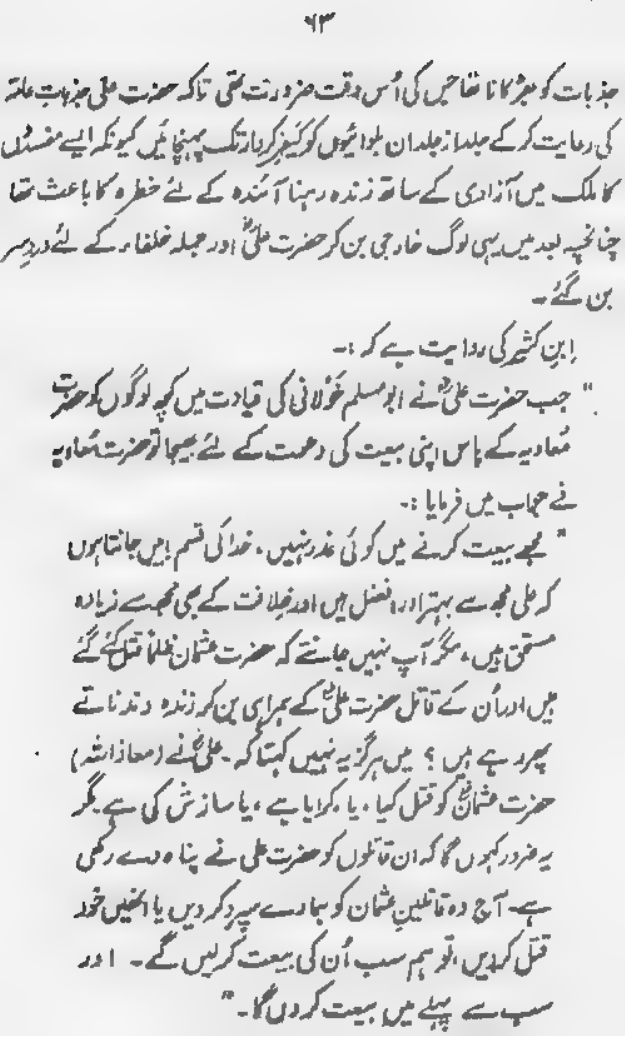 ۶۳
جذبات کو بھڑکانا تھا جس کی اُس وقت ضرورت تھی تاکہ حضرت علی جذباتِ عامّہ
کی رعایت کر کے جلد از جلد ان بلوائیوں کو کیفرِ کردار تک پہنچائیں کیونکہ ایسے مفسدوں
کا ملک میں آزادی کے ساتھ زندہ رہنا آئندہ کے لئے خطرہ کا باعث تھا
چنانچہ بعد میں یہی لوگ خارجی بن کر حضرت علیؓ اور جملہ خلفاء کے لئے دردِ سر
بن گئے ۔
اِبنِ کثیر کی روایت ہے کہ :۔
" جب حضرت علیؓ نے ابو مسلم خَولانی کی قیادت میں کچھ لوگوں کو حضرت
مُعاویہ کے پاس اپنی بیعت کی دعوت کے لئے بھیجا تو حضرت مُعاویہ
نے جواب میں فرمایا :۔
" مجھے بیعت کرنے میں کوئی عذر نہیں ، خدا کی قسم! میں جانتا ہوں
کہ علی مجھ سے بہتر اور افضل ہیں اور خِلافت کے بھی مجھ سے زیادہ
مستحق ہیں ، مگر آپ نہیں جانتے کہ حضرت عثمان ظلماً قتل کئے گئے
ہیں اور اُن کے قاتل حضرت علیؓ کے ہمراہی بن کر زندہ دندناتے
پھر رہے ہیں ؟ میں ہرگز یہ نہیں کہتا کہ ۔ علیؓ نے (معاذ اللہ)
حضرت عثمانؓ کو قتل کیا ، یا ، کرایا ہے ، یا سازش کی ہے ۔ مگر
یہ ضرور کہوں گا کہ ان قاتلوں کو حضرت علی نے پناہ دے رکھی
ہے ۔ آج وہ قاتلینِ عثمان کو ہمارے سپرد کر دیں یا انھیں خود
قتل کر دیں ، تو ہم سب اُن کی بیعت کر لیں گے ۔ اور
سب سے پہلے میں بیعت کر دں گا ۔ "